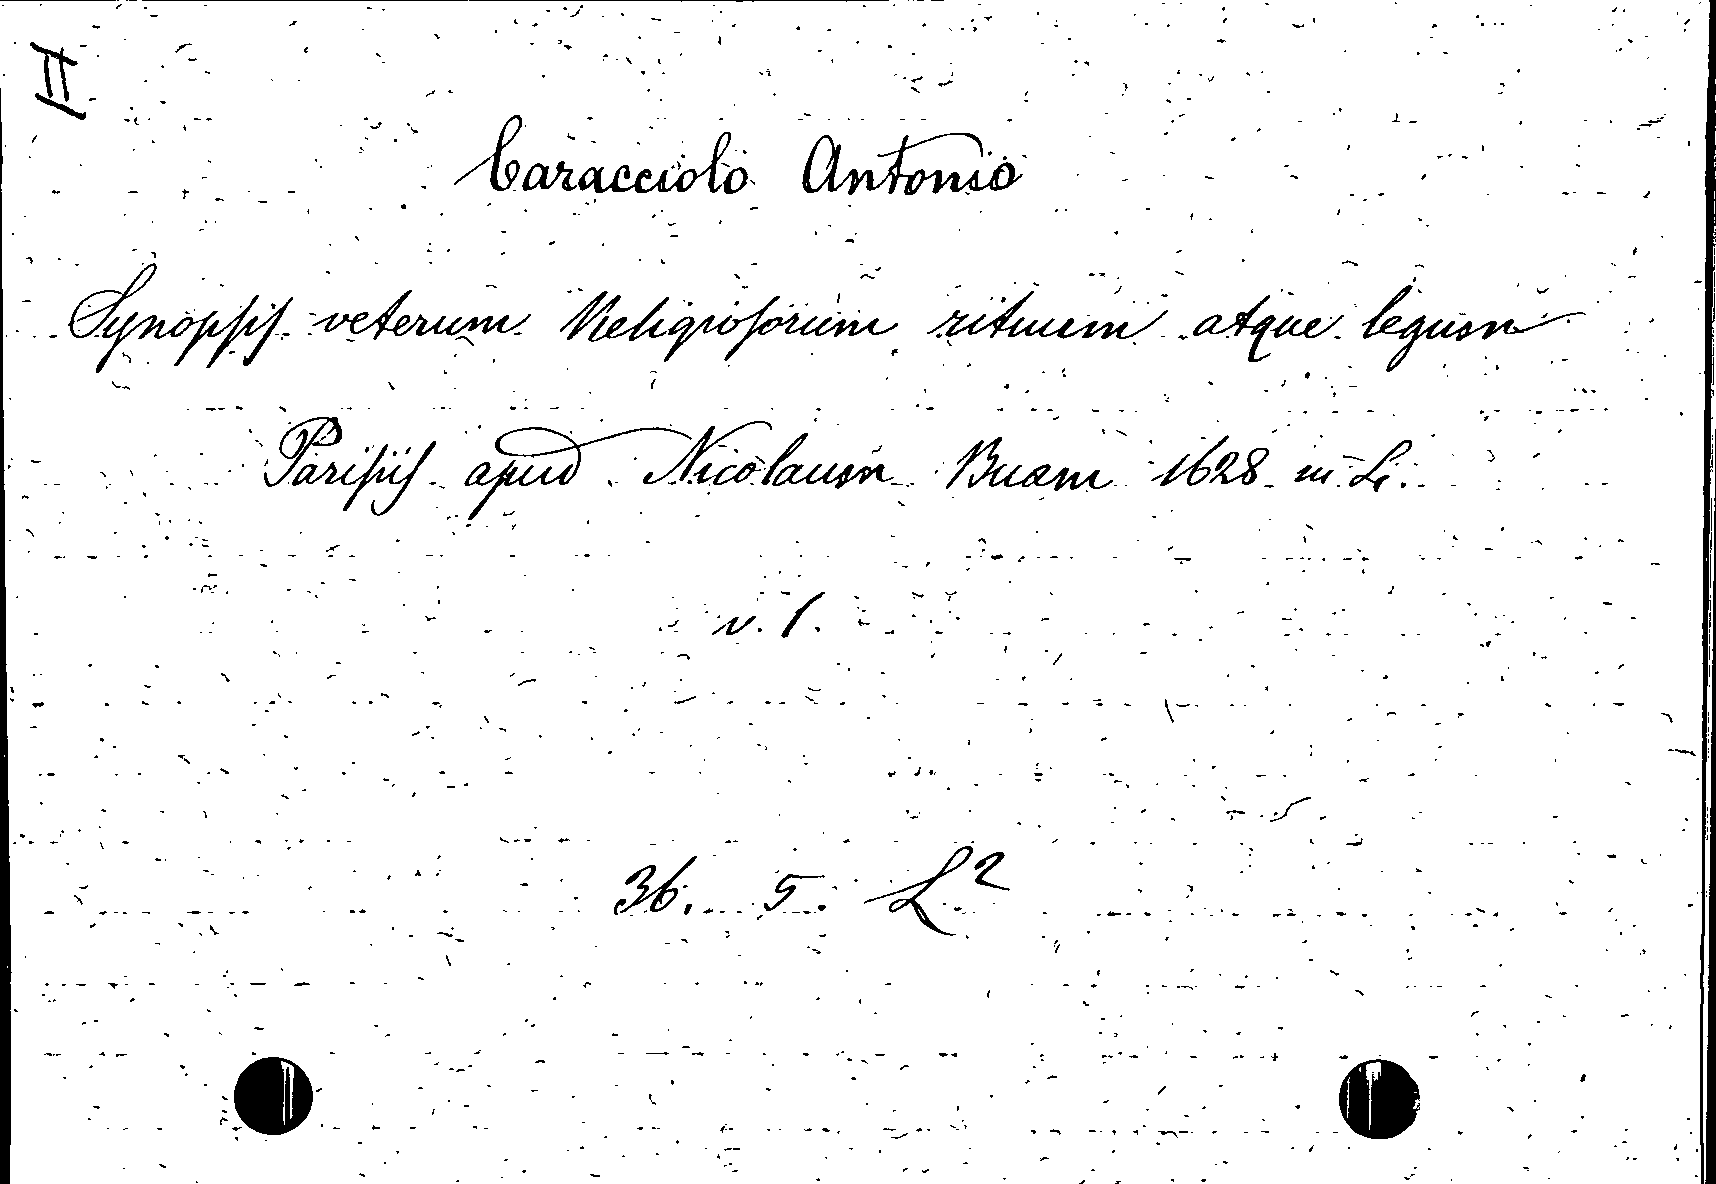 II
Caracciolo Antonio
Synopsis veterum Religiosorum rituum atque legum
Parisiis apud Nicolaum Buam 1628 in
v. 1.
36. 5. L²